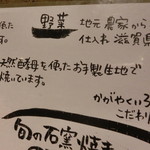 です。
野菜 地元農家から
仕入れ 滋賀県
天然酵母を使たお手製生地で
焼いています。
かがやくいろ
こだわり
旬の石窯焼き